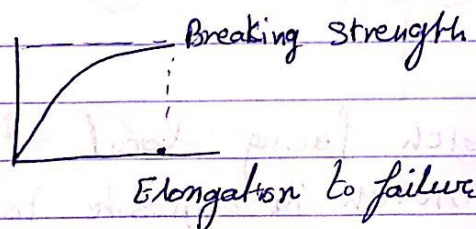 Breaking Strength
Elongation to failure